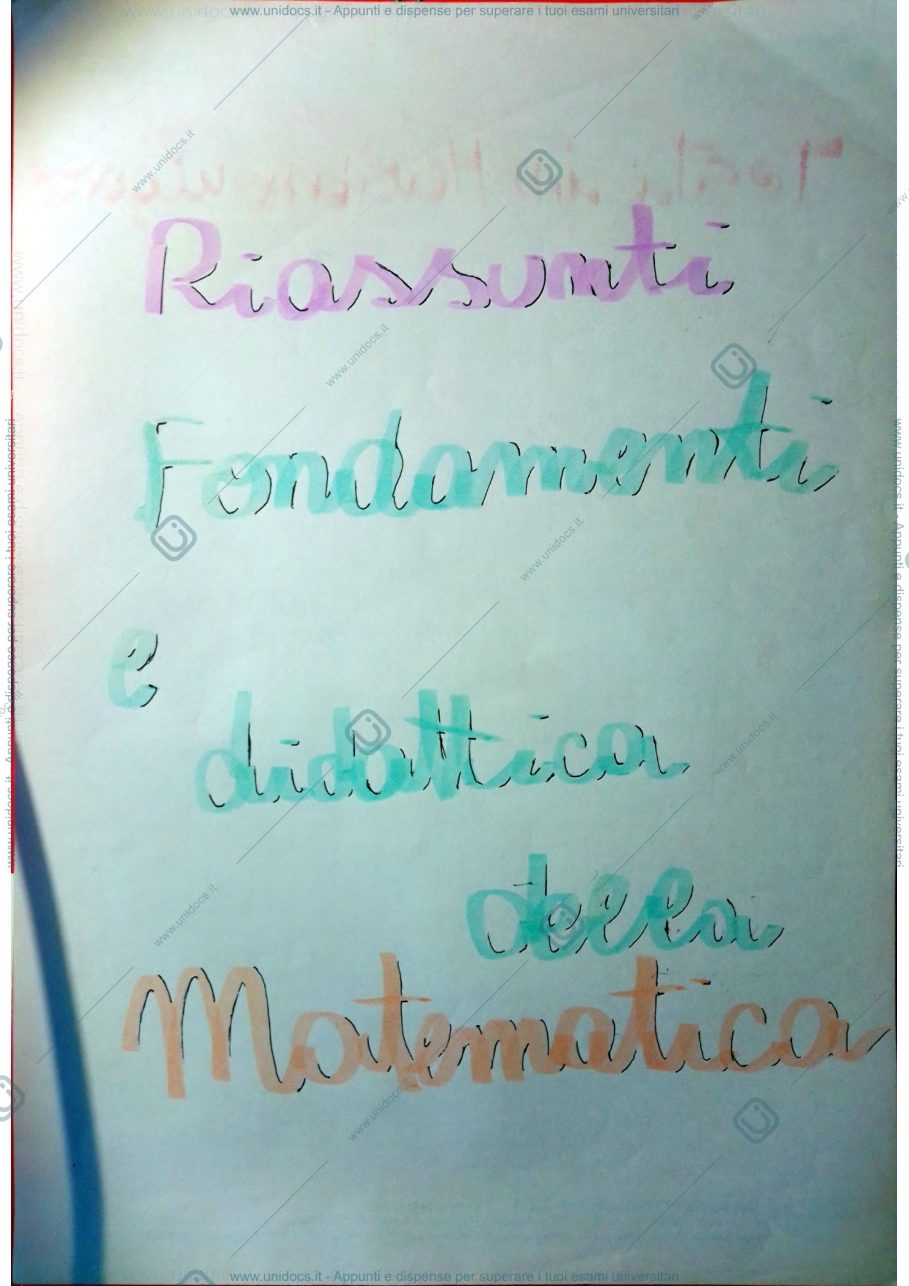 www.unidocs.it - Appunti e dispense per superare i tuoi esami universitari
Riassunti
Fondamenti
e
didattica
della
Matematica
www.unidocs.it - Appunti e dispense per superare i tuoi esami universitari